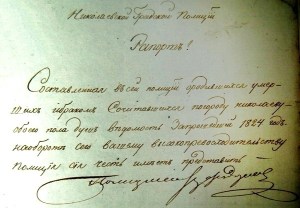 Николаевской Градской Полиціи
Рапортъ!
Составленная въ сей полиціи о родившихся умер-
шихъ и бракомъ Сочитавшихся по городу Николаеву
обоего пола душъ вѣдомость За прошедшій 1824 годъ
на оборотѣ сего вашему высокопревосходительству
Полиція сія честь имѣетъ представить
Полицмейстеръ